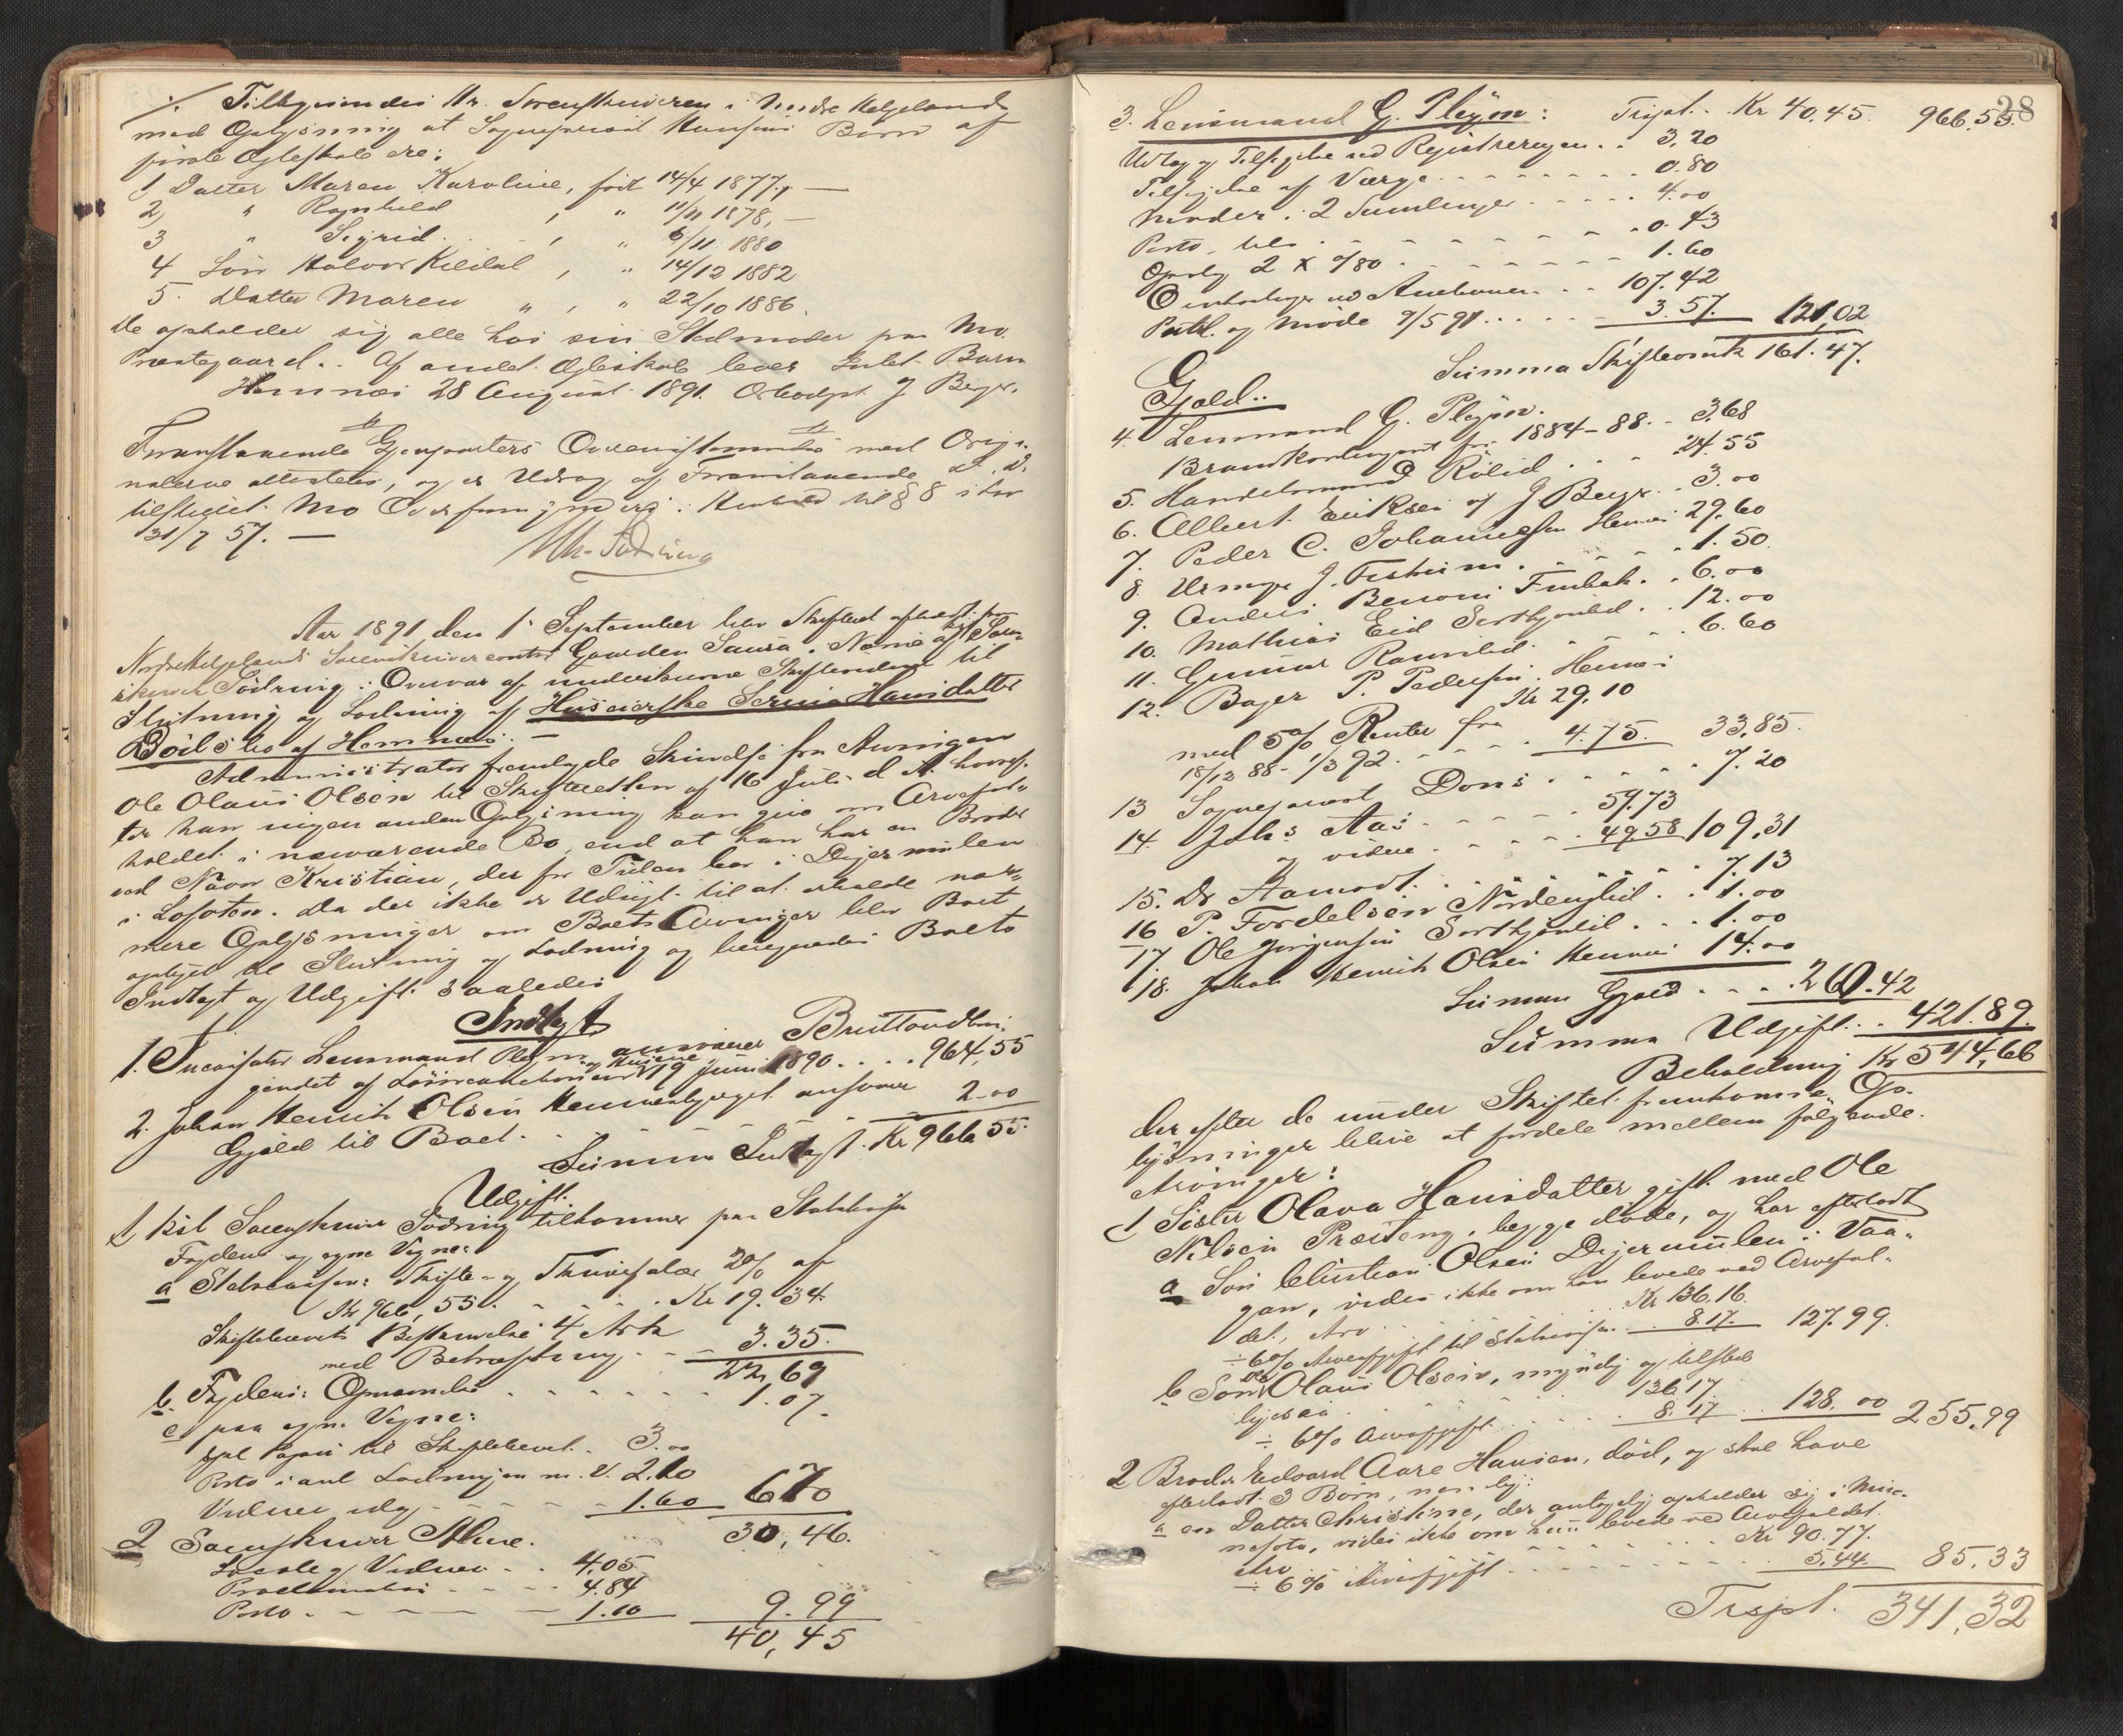 ·/· Tilbagesendes Hr. Sorenskriveren i Nordre Helgeland
med Oplysning at Sogneprest Hansens Børn af
første Ægteskab ere:
1 Datter Maren Karoline, født 14/4 1877, —
2, " Ragnhild , " 11/11 1878, —
3 " Sigrid , " 6/11 1880
4 Søn Halvor Kildal , " 14/12 1882
5. Datter Maren " , " 22/10 1886.
De opholder sig alle hos sin Stedmoder paa Mo
Præstegaard. Af andet Ægteskab lever intet Barn
Hemnæs 28 August 1891. J Berger.
Foranstaaende Gjenparters Overensstemmelse med Origi-
nalerne attesteres, og er Udtog af Foranstaaende d. D.
tilstillet Mo Overformynderi i Henhold til § 8 i Lov
31/7 57. —
Aar 1891 den 1 September blev Skifteret afholdt paa
Nordre Helgelands Sorenskrivercontor Gaarden Saura i Nesna af kst Soren-
skriver Sødring i Overvær af underskrevne Skiftevidner til
Slutning og Lodning af Huseierske Serina Hansdatter
Bøils bo af Hemnæs. —
Administrator fremlagde Skrivelse fra Arvingen
Ole Olaus Olsen til Skifteretten af 16 Juli d. A. hvoref-
ter han ingen anden Oplysning kan give om Arvefor-
holdet i nærværende Bo, end at han har en Broder
ved Navn Kristian, der for Tiden bor i Digermulen
i Lofoten. Da der ikke er Udsigt til at erholde nær-
mere Oplysninger om Boets Arvinger blev Boet
optaget til Slutning og Lodning og beregnedes Boets
Indtægt og Udgift saaledes
Indtægt
1. Incassator Lensmand Pleym ansvarer Bruttoudbrin-
gendet af Løsøreauktionen 19 Juni 1890 . . . . 964,55
2. Johan Henrik Olsen Hemnesberget ansvarer
Gjæld til Boet . . . 2.00
Summa Indtægt. Kr 966,55.
Udgift.
1 kst Sorenskriver Sødring tilkommer paa Statskassens
Fogdens og egne Vegne:
a Statskassen: Skifte- og Skriversalær 2% af
Kr 966,55 . . . . . Kr 19.34
Skiftebrevets Beskrivelse 4 Ark
med Bekræftning . . 3.35.
22,69
b. Fogdens: . . . . . . . 1.07.
c paa egne Vegne:
Stpl Papir til Skiftebrevet . 3.00
Porto i anl Lodningen m. V. 2.10
Vidner idag . . . . . . 1.60 6.70
30,46.
2 Sorenskriver
Lokale og Vidner . . 4,05
Proclamation . . . . 4.84
Porto . . . . . . 1.10 9.99
40,45
28
3. Lensmand G. Pleym: Trspt. Kr 40.45. 966.55
Udtog og Tilsigelse ved Registreringen . . 3,20
Tilsigelse af Værge . . . . . . . 0.80
Møder i 2 Samlinger . . . . . 4.00
Porto . . . . . . . . . 0.43
2 x 0/80 . . . . . . . 1.60
Omkostninger ved Auctionen . . 107.42
og Møde 9/5 91 . . . . . 3.57. 121,02
Summa Skifteomk 161.47.
Gjæld..
4. Lensmand G. Pleym.
Brandkontingent for 1884-88 . . 3,68
5. Handelsmand Rølid . . . . 24.55
6. Albert Eriksen af J Berger . . 3.00
7. Peder C. Johannessen Hemnæs 29,60
8. Urmager J. . . . . . 1.50
9. Anders Benoni Finbak . . 6.00
10. Mathias Eid . . 12.00
11. Gunnar . . . 6.60
12. Bager P. Pedersen. Hemnæs
Kr 29,10
med 5% Renter fra
18/12 88 - 1/3 92 . . . . . 4.75. 33,85.
13 Sogneprest Dons . . . . . . 7.20
14. Johs Aas . . . . 59,73
og videre . . . . 49,58 109,31
15. Dr Aamodt . . . . . . . 7,13
16 P. Fordelsen . . 1.00
17. Ole Jørgensen . . . 1.00
18. Johan Henrik Olsen Hemnæs 14.00
Summa Gjæld . . . . 260.42
Summa Udgift . . . 421.89.
Beholdning Kr 544,66
der efter de under Skiftet fremkomne Op-
lysninger blive at fordele mellem følgende
Arvinger:
1 Søster Olava Hansdatter gift med Ole
Nilsen Præsteng, begge døde, og har efterladt
a Søn Christian Olsen Digermulen i Vaa-
gan, vides ikke om han levede ved Arvefal-
det, Arv . . . . . Kr 136.16.
÷ 6% Arveafgift til Statskassen . . 8.17. 127.99.
b Søn Ole Olaus Olsen, myndig og tilsted
ligesaa . . . . . . 136.17.
÷ 6% Arveafgift . . . . . . 8.17 128.00 255,99
2 Broder Edvard Aare Hansen, død, og skal have
efterladt 3 Børn, nemlig:
a en Datter Christine, der antagelig opholder sig i Min-
nesota, vides ikke om hun levede ved Arvefaldet.
Arv . . . . . . . . . Kr 90.77.
÷ 6% Arveafgift . . . . . . 5.44. 85.33
Trspt. 341,32